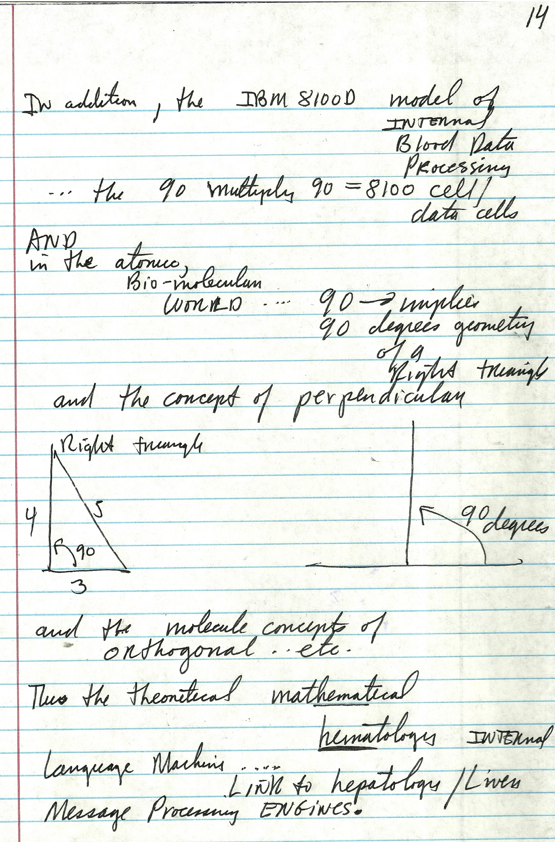 14
In addition, the IBM 8100D model of
INTERNAL
Blood Data
Processing
... the 90 multiply 90 = 8100 cell/
data cells
AND
in the atomic,
Bio-molecular
WORLD .... 90 → implies
90 degrees geometry
of a
Right triangle
and the concept of perpendicular
Right triangle
4
5
90
3
90 degrees
and the molecule concepts of
orthogonal .. etc.
Thus the theoretical mathematical
hematology INTERNAL
Language Machine .....
LINK to hepatology / Liver
Message Processing ENGINES.